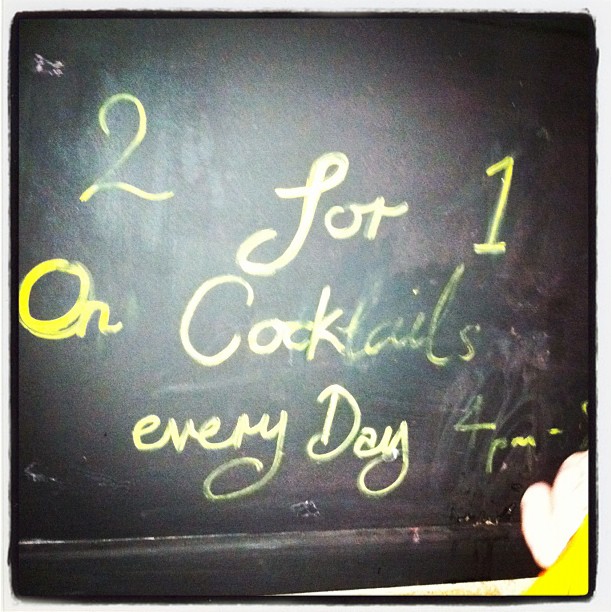 2 for 1
On Cocktails
every Day 4pm -